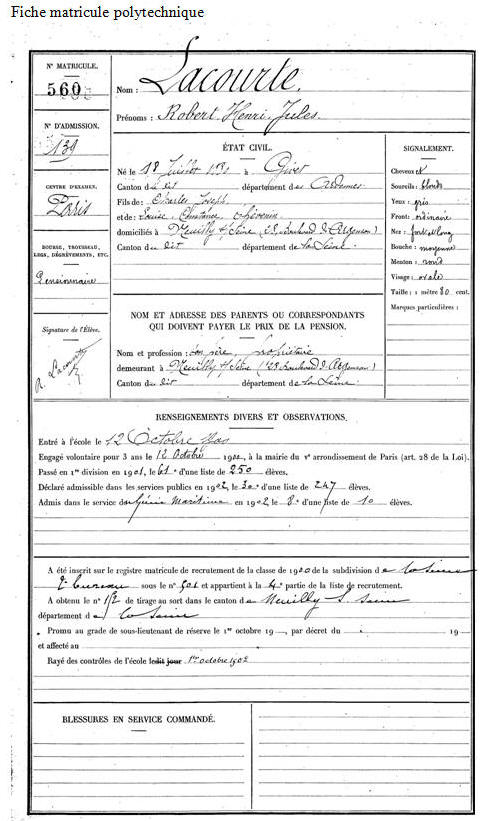 Fiche matricule polytechnique
N° MATRICULE.
560
N° D'ADMISSION.
139
CENTRE D'EXAMEN.
Paris
BOURSE, TROUSSEAU,
LEGS, DÉGRÈVEMENTS, ETC.
Pensionnaire
Signature de l'Élève.
R. Lacourte
Nom : Lacourte.
Prénoms : Robert Henri Jules
ÉTAT CIVIL.
Né le 18 Juillet à Givet
Canton du dit département des Ardennes
Fils de Charles Joseph
et de Louise Constance Thévenin
domiciliés à Neuilly s/ Seine (23 Boulevard d'Argenson)
Canton du dit département de la Seine
SIGNALEMENT.
Cheveux et
Sourcils : blonds
Yeux : gris
Front : ordinaire
Nez : fort et long
Bouche : moyenne
Menton : rond
Visage : ovale
Taille : 1 mètre 80 cent.
Marques particulières :
NOM ET ADRESSE DES PARENTS OU CORRESPONDANTS
QUI DOIVENT PAYER LE PRIX DE LA PENSION.
Nom et profession : son père, propriétaire
demeurant à Neuilly s/ Seine (23 boulevard d'Argenson)
Canton du dit département de la Seine
RENSEIGNEMENTS DIVERS ET OBSERVATIONS.
Entré à l'école le 12 Octobre 1900
Engagé volontaire pour 3 ans le 12 Octobre 1900, à la mairie du v° arrondissement de Paris (art. 28 de la Loi).
Passé en 1re division en 1901, le 61e d'une liste de 250 élèves.
Déclaré admissible dans les services publics en 1902, le 30e d'une liste de 247 élèves.
Admis dans le service du Génie Maritime en 1902 le 8e d'une liste de 10 élèves.
A été inscrit sur le registre matricule de recrutement de la classe de 1900 de la subdivision de la Seine
2e bureau sous le n° 501 et appartient à la 4e partie de la liste de recrutement.
A obtenu le n° 112 de tirage au sort dans le canton de Neuilly s. Seine
département de la Seine
Promu au grade de sous-lieutenant de réserve le 1er octobre 19 , par décret du 19
et affecté au
Rayé des contrôles de l'école ledit jour 1er octobre 1902
BLESSURES EN SERVICE COMMANDÉ.